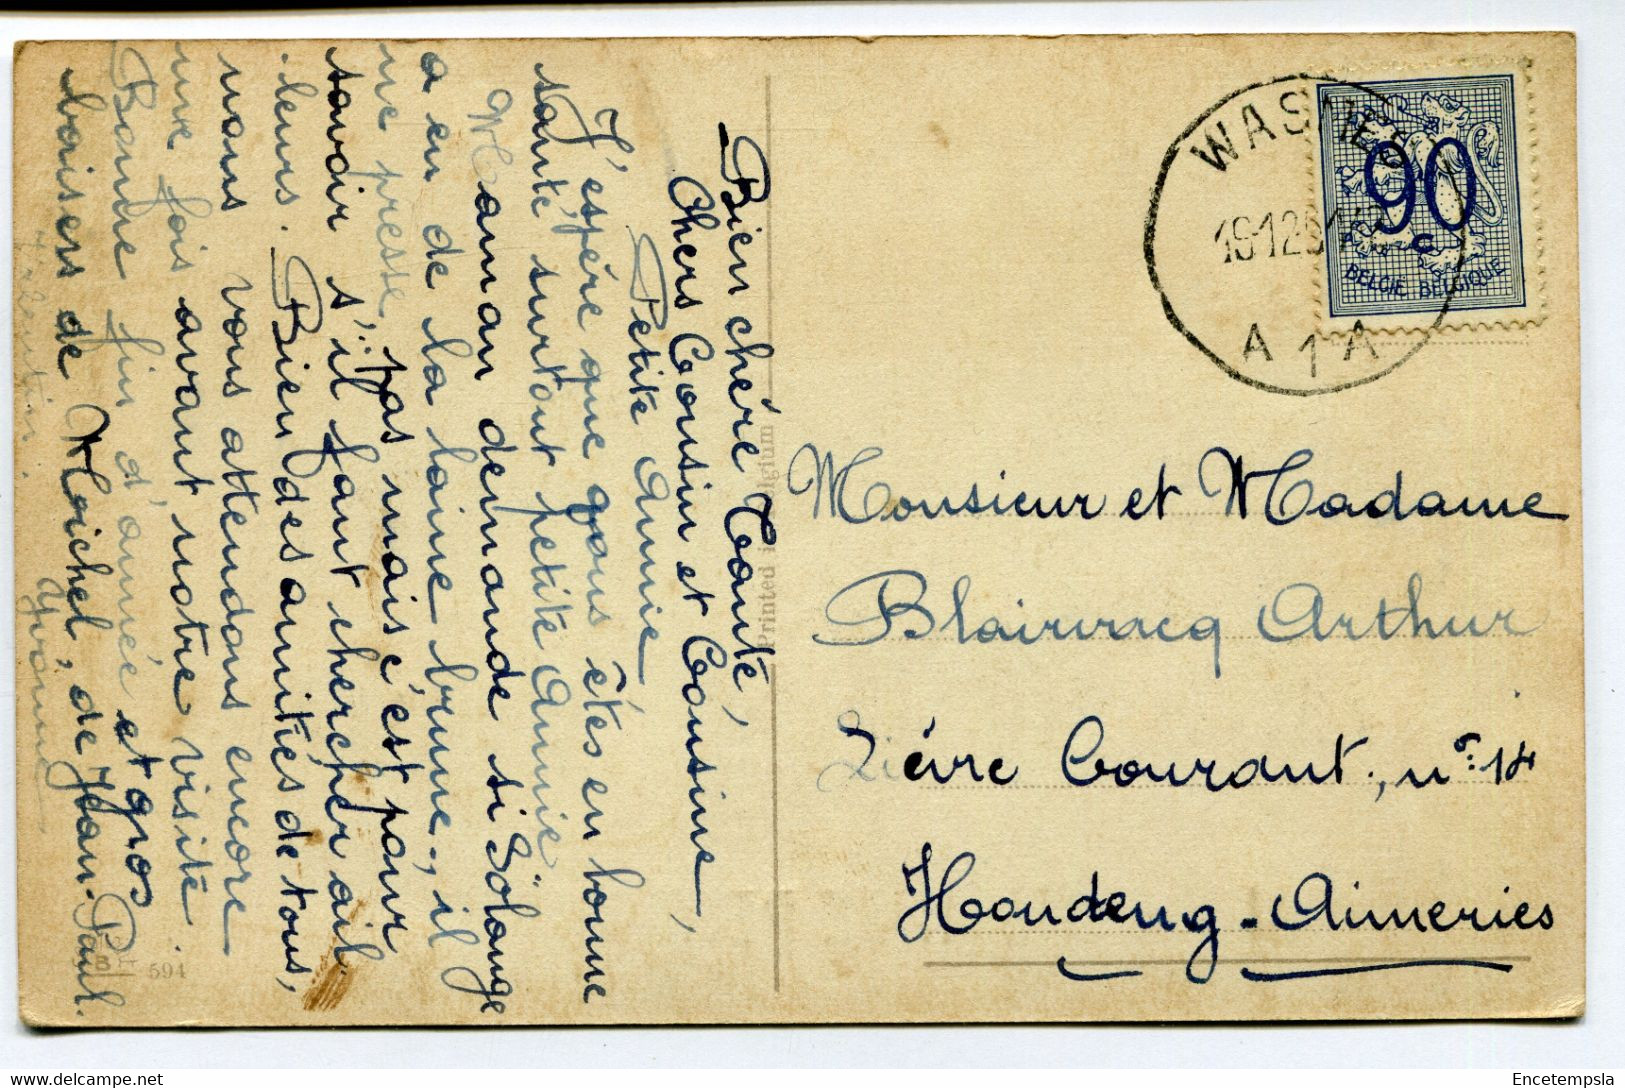 Bien chère Tante,
Chers Cousin et Cousine,
Petite Annie
J'espère que vous êtes en bonne
santé surtout petite Annie
Maman demande si Solange
a eu de la laine brune, il
ne presse pas mais c'est pour
savoir s'il faut chercher ail-
leurs. Bien des amitiés de tous,
nous vous attendons encore
une fois avant notre visite.
Bonne fin d'année et gros
baisers de Michel, de Jean-Paul.
Valentin. Yvonne
Printed in Belgium
594
WASMES
A 1 A
90 c
BELGIE BELGIQUE
Monsieur et Madame
Blairvacq Arthur
Courant, n° 14
Houdeng-Aimeries
Encetempsla